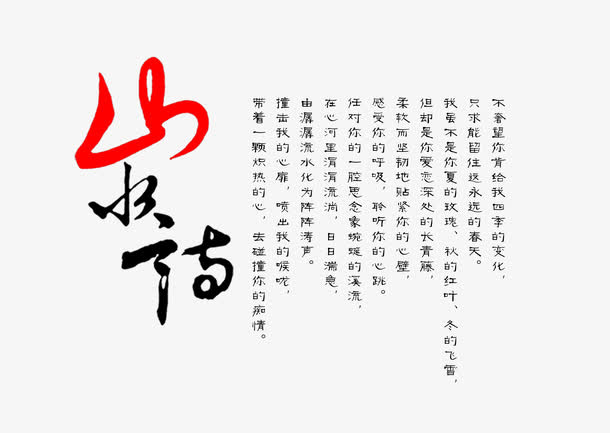 山水诗
不奢望你肯给我四季的变化，
只求能留住这永远的春天。
我虽不是你夏的玫瑰、秋的红叶、冬的飞雪，
但却是你爱恋深处的长青藤，
柔软而坚韧地贴紧你的心壁，
感受你的呼吸，聆听你的心跳。
任对你的一腔思念象蜿蜒的溪流，
在心河里涓涓流淌，日日湍急，
由潺潺流水化为阵阵涛声。
撞击我的心扉，喷出我的喉咙，
带着一颗炽热的心，去碰撞你的痴情。